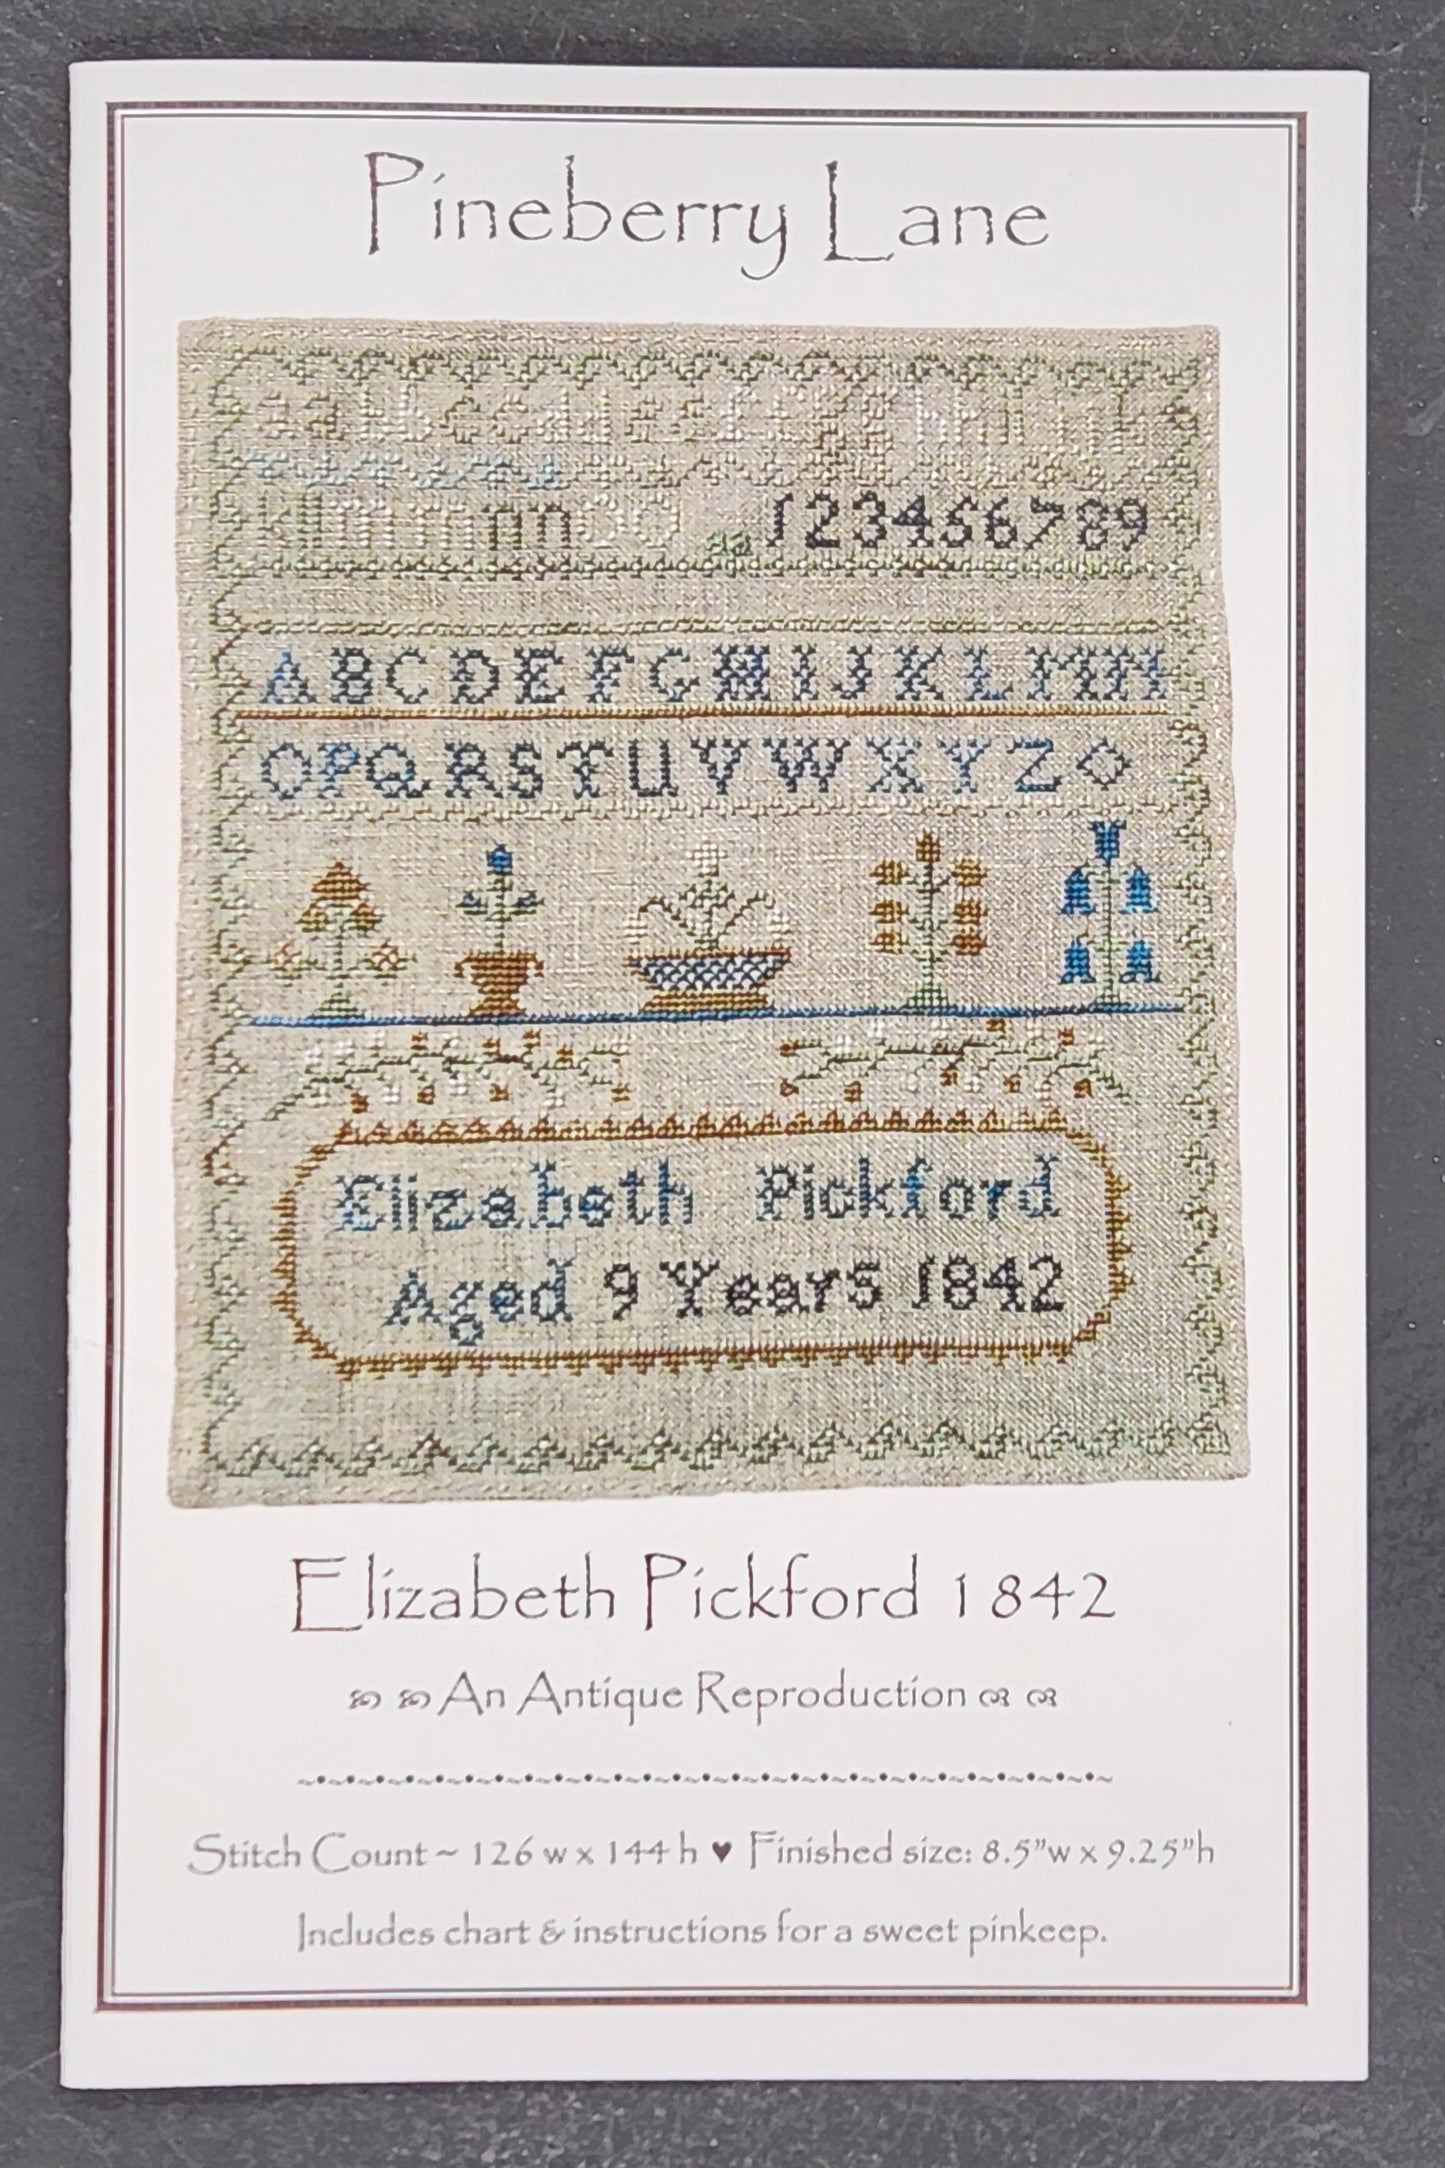 Pineberry Lane
123456789
ABCDEFGHIJKLMN
OPQRSTUVWXYZ
Elizabeth Pickford
Aged 9 Years 1842
Elizabeth Pickford 1842
An Antique Reproduction
Stitch Count~ 126 w x 144 h ♥ Finished size: 8.5”w x 9.25”h
Includes chart & instructions for a sweet pinkeep.